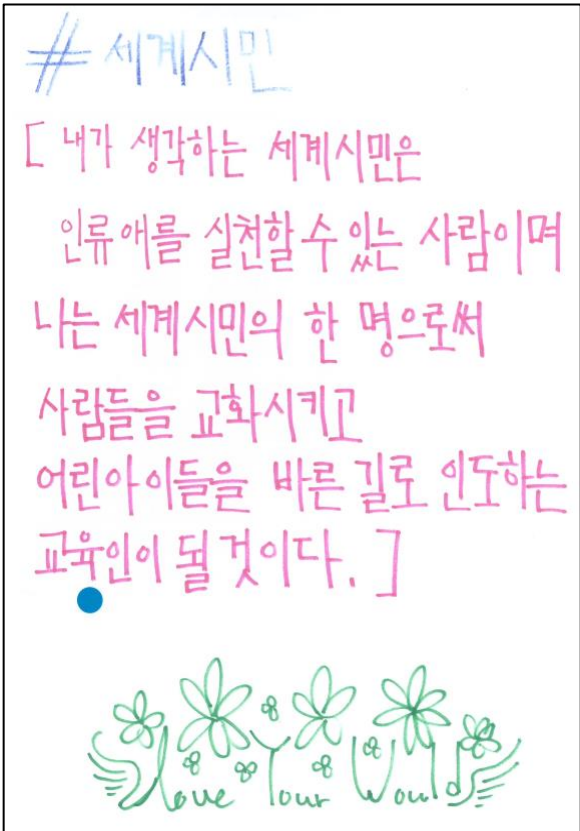 # 세계시민
[ 내가 생각하는 세계시민은
인류애를 실천할 수 있는 사람이며
나는 세계시민의 한 명으로써
사람들을 교화시키고
어린아이들을 바른 길로 인도하는
교육인이 될 것이다. ]
Love Your World